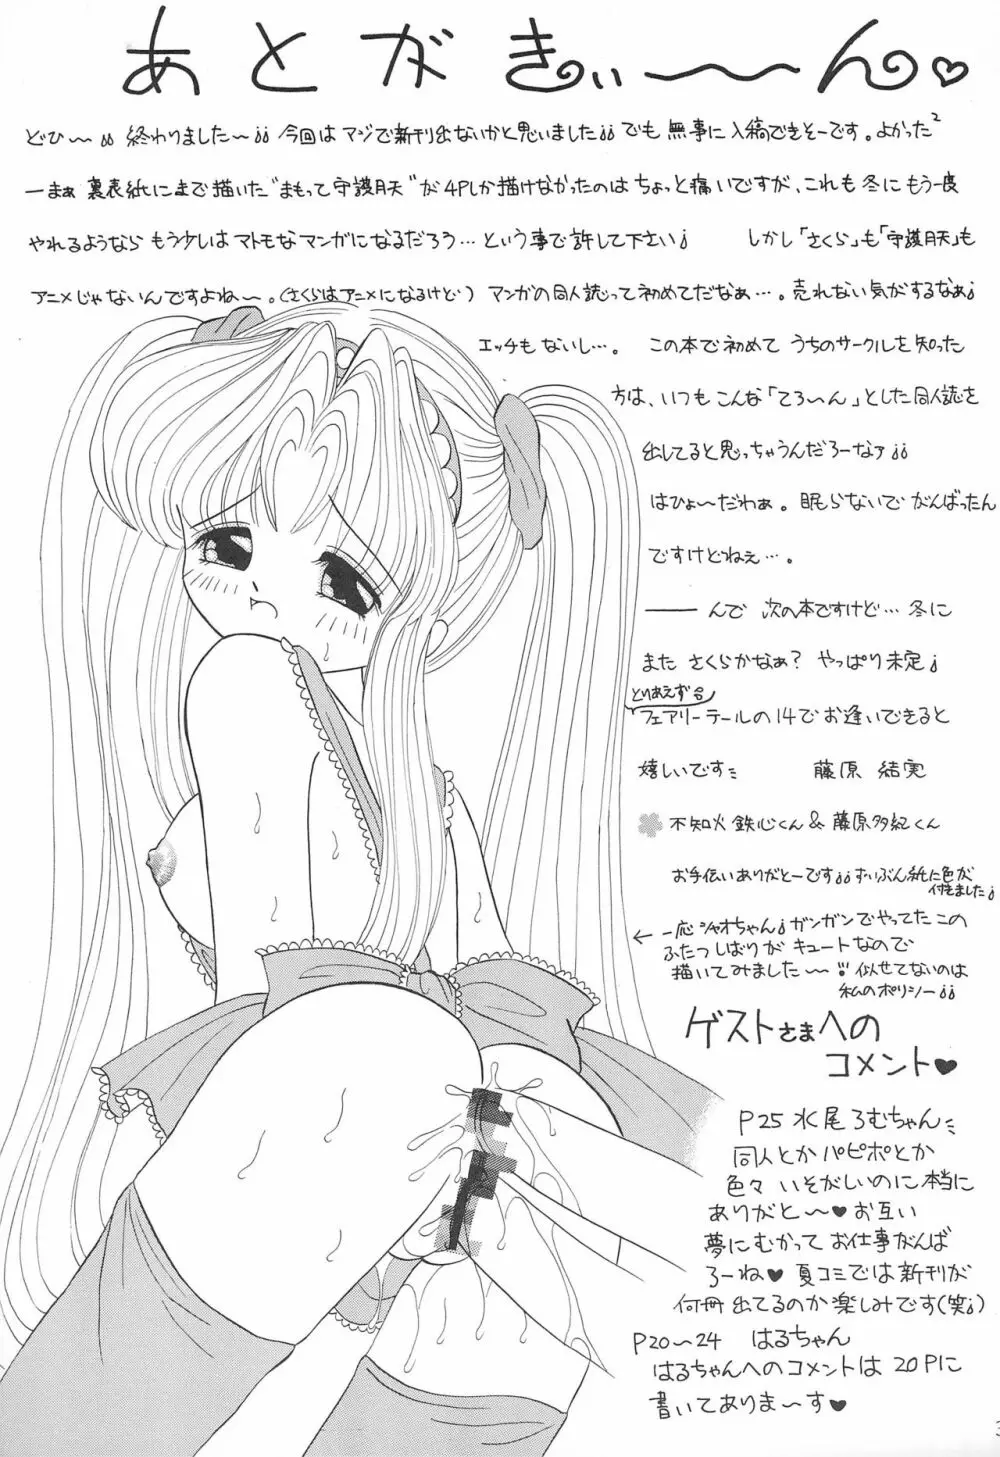 あとがきぃーーん♡
どひ〜〜¡¡ 終わりました〜¡¡ 今回は マジで新刊出ないかと思いました¡¡ でも 無事に入稿できそーです。よかった²
ーまぁ 裏表紙にまで描いた"まもって守護月天"が4Pしか描けなかったのは ちょっと痛いですが、これも冬にもう一度
やれるようなら もう少しはマトモなマンガになるだろう…という事で許して下さい¡ しかし「さくら」も「守護月天」も
アニメじゃないんですよね〜。(さくらはアニメになるけど) マンガの同人誌って初めてだなぁ…。売れない気がするなぁ¡
エッチもないし…。 この本で初めて うちのサークルを知った
方は、いつもこんな「てろ〜ん」とした同人誌を
出してると思っちゃうんだろーなァ¡¡
はひょ〜だわぁ。眠らないでがんばったん
ですけどねぇ…。
んで 次の本ですけど…冬に
また さくらかなぁ? やっぱり未定¡
とりあえず
フェアリーテールの14でお逢いできると
嬉しいです 藤原 結実
不知火 鉄心くん & 藤原多紀くん
お手伝いありがとーです¡¡ ずいぶん紙に色が
付きました¡
← 一応シャオちゃん¡ ガンガンでやってた この
ふたつしばりが キュートなので
描いてみました〜 似せてないのは
私のポリシー¡¡
ゲストさまへの
コメント♥
P25 水尾ろむちゃん
同人とか パピポとか
色々 いそがしいのに本当に
ありがと〜♥お互い
夢にむかって お仕事がんば
ろーね♥ 夏コミでは新刊が
何冊出てるのか楽しみです(笑¡)
P20〜24 はるちゃん
はるちゃんへのコメントは 20Pに
書いてありま〜す♥